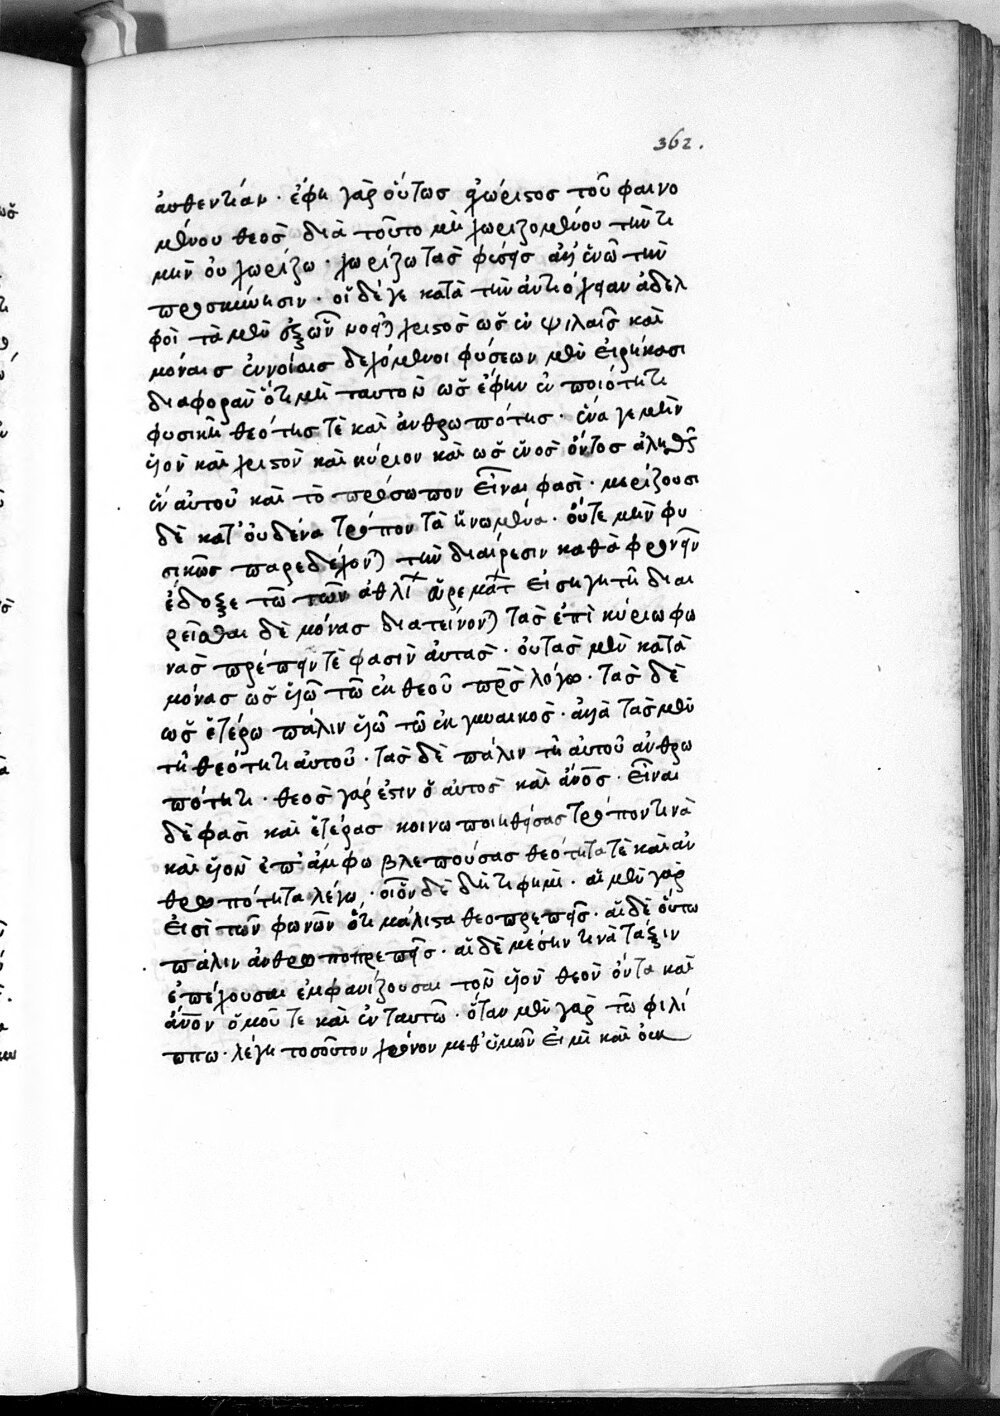 362.
αὐθεντίαν · ἔφη γὰρ οὕτως ἀχώριστος τοῦ φαινο
μένου θεὸς διὰ τοῦτο μὴ χωριζομένου τὴν τι
μὴν οὐ χωρίζω · χωρίζω τὰς φύσεις ἀλλ' ἑνῶ τὴν
προσκύνησιν · οἱ δέ γε κατὰ τὴν ἀντιόχειαν ἀδελ
φοὶ τὰ μὲν ἐξ ὧν νοεῖται χριστὸς ὡς ἐν ψιλαῖς καὶ
μόναις ἐννοίαις δεχόμενοι φύσεων μὲν εἰρήκασι
διαφορὰν ὅτι μὴ ταυτὸν ὡς ἔφην ἐν ποιότητι
φυσικῇ θεότης τὲ καὶ ἀνθρωπότης · ἕνα γε μὴν
υἱὸν καὶ χριστὸν καὶ κύριον καὶ ὡς ἑνὸς ὄντος ἀληθῶς
ἓν αὐτοῦ καὶ τὸ πρόσωπον εἶναι φασὶ · μερίζουσι
δὲ κατ' οὐδένα τρόπον τὰ ἡνωμένα · οὔτε μὴν φυ
σικῶς παρεδέχοντο τὴν διαίρεσιν καθὰ φρονεῖν
ἔδοξε τῶ τῶν ἀθλί εὑρεμάτ εἰσηγητῆ διαι
ρεῖσθαι δὲ μόνας διατείνονται τὰς ἐπὶ κυρίω φω
νὰς πρέπειν τέ φασιν αὐτὰς · οὔτας μὲν κατὰ
μόνας ὡς υἱῶ τῶ ἐκ θεοῦ πρς λόγω · τὰς δὲ
ὡς ἑτέρω πάλιν υἱῶ τῶ ἐκ γυναικὸς · ἀλλὰ τὰς μὲν
τῇ θεότητι αὐτοῦ · τὰς δὲ πάλιν τῇ αὐτοῦ ἀνθρω
πότητι · θεὸς γάρ ἐστιν ὁ αὐτὸς καὶ ἄνος · εἶναι
δὲ φασὶ καὶ ἑτέρας κοινωποιηθείσας τρόπον τινὰ
καὶ οἷον ἐπ' ἄμφω βλεπούσας θεότητα τὲ καὶ ἀν
θρωπότητα λέγω · οἷον δὲ δή τι φημι · αἱ μὲν γάρ
εἰσὶ τῶν φωνῶν ὅτι μάλιστα θεοπρεπεῖς · αἱ δὲ οὕτω
πάλιν ἀνθρωποπρεπεῖς · αἱ δὲ μέσην τινὰ τάξιν
ἐπέχουσαι ἐμφανίζουσαι τὸν υἱὸν θεὸν ὄντα καὶ
ἄνον ὁμοῦ τε καὶ ἐν ταυτῶ · ὅταν μὲν γὰρ τῶ φιλί
ππω · λέγη τοσοῦτον χρόνον μεθ' ὑμῶν εἰμὶ καὶ οὐκ